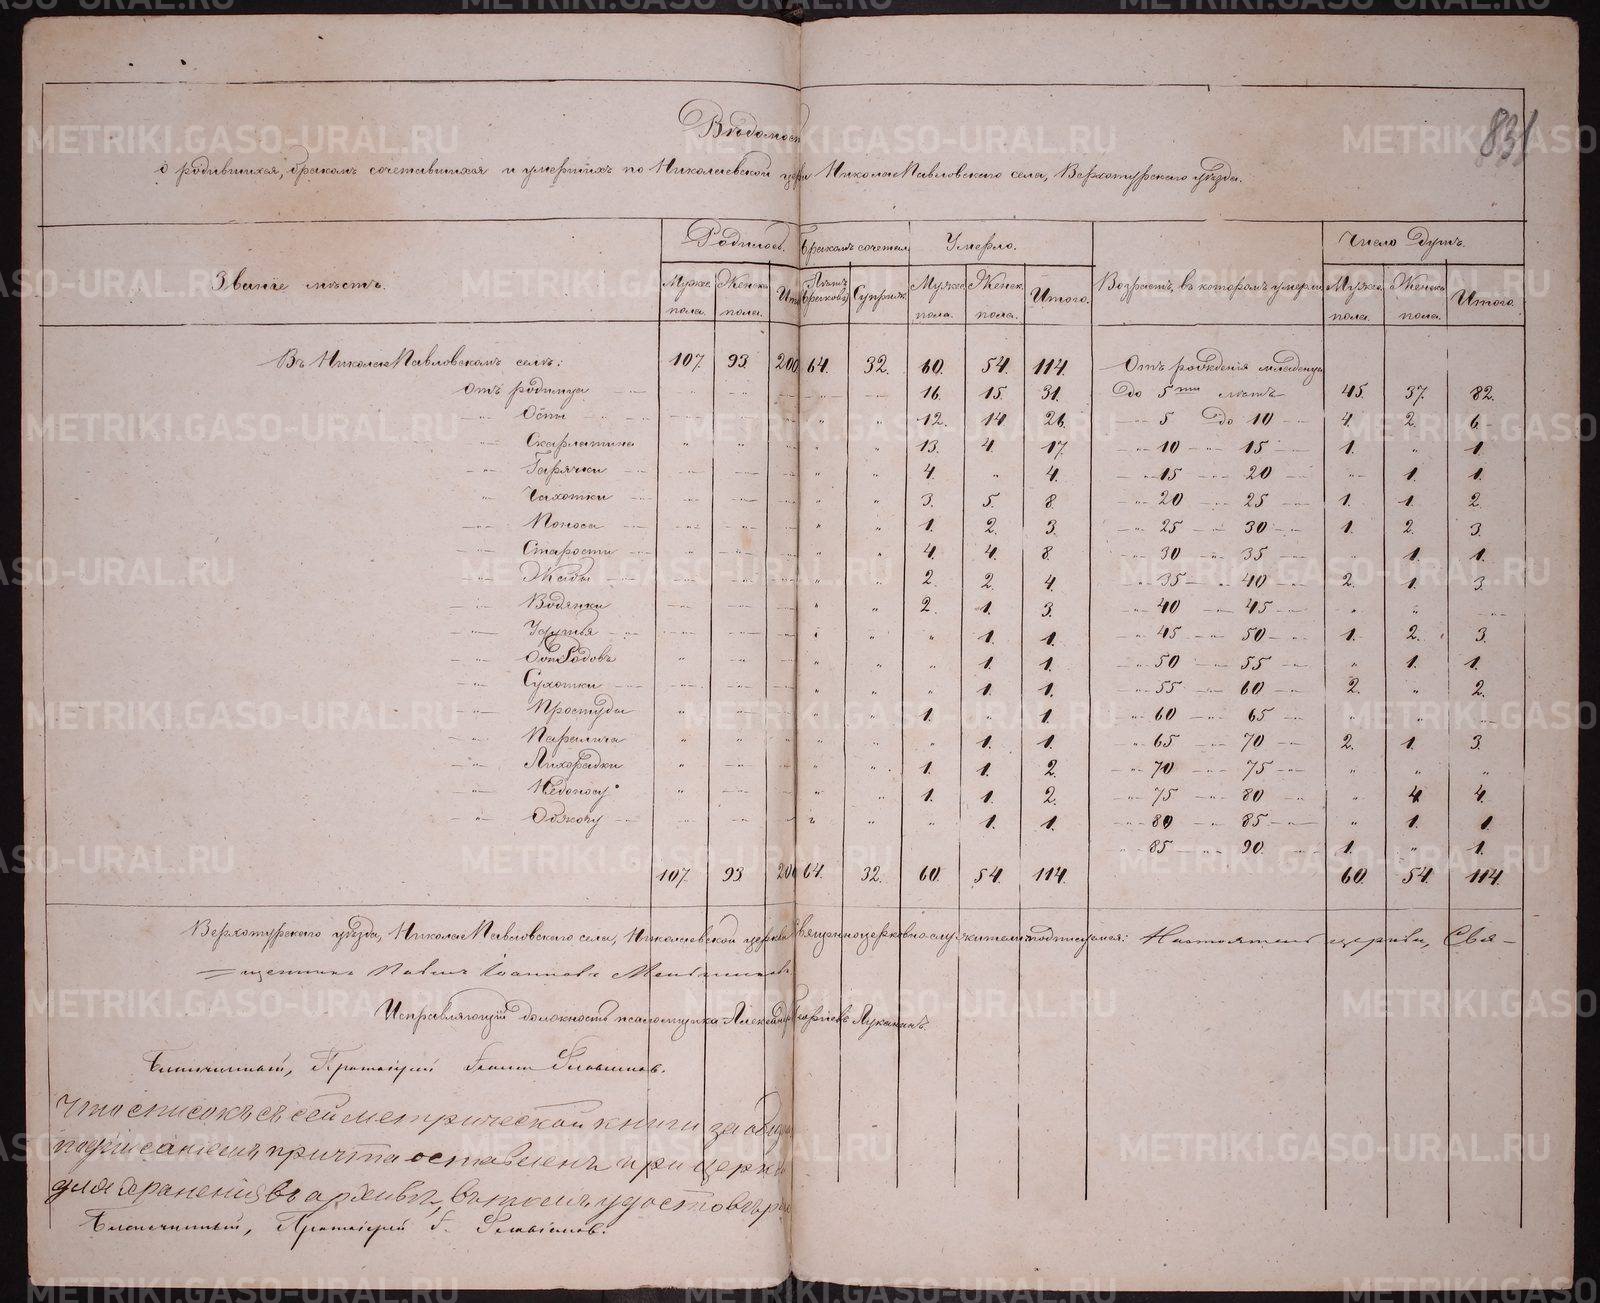 831
Вѣдомость
о родившихся, бракомъ сочетавшихся и умершихъ по Николаевской церкви НиколаеПавловскаго села, Верхотурскаго уѣзда.
Званіе мѣстъ. Родилось. Бракомъ сочетал. Умерло. Возрастъ, въ которомъ умерли Число душъ.
Мужес. пола. Женска пола. Лѣтъ браковъ Супруж. Мужес. пола. Женск. пола. Итого. Мужес. пола. Женска пола. Итого.
Въ НиколаеПавловскомъ селѣ: 107. 93. 200 64. 32. 60. 54. 114. Отъ рожденія младенца
отъ родимца 16. 15. 31. до 5ти лѣтъ 45. 37. 82.
Оспы 12. 14. 26. 5 до 10 4. 2. 6.
Скарлатина 13. 4. 17. 10 15 1. " 1.
Горячки 4. " 4. 15 20 " 1. 1.
Чахотки 3. 5. 8. 20 25 1. 1. 2.
Поноса 1. 2. 3. 25 30 1. 2. 3.
Старости 4. 4. 8. 30 35 " 1. 1.
Жабы 2. 2. 4. 35 40 2. 1. 3.
Водянки 2. 1. 3. 40 45 " "
Удушья " 1. 1. 45 50 1. 2. 3.
Родовъ " 1. 1. 50 55 " 1. 1.
Сухотки " 1. 1. 55 60 2. " 2.
Простуды 1. " 1. 60 65 " "
Паралича " 1. 1. 65 70 2. 1. 3.
Лихорадки 1. 1. 2. 70 75 " " "
Недоносу 1. 1. 2. 75 80 " 4. 4.
Обжогу " 1. 1. 80 85 " 1. 1.
85 90 1. " 1.
107. 93 200 64. 32. 60. 54. 114. 60. 54. 114.
Верхотурскаго уѣзда, НиколаеПавловскаго села, Николаевской церкви Священноцерковнослужители подписуемся: Настоятель церкви, Свя-
щенникъ Павелъ Іоанновъ
Исправляющій должность псаломщика Александръ Георгіевъ Луканинъ.
Благочинный, Протоіерей
Что списокъ съ сей метрической книги за общимъ
подписаніемъ причта оставленъ при церкви
для храненія въ архивѣ, въ томъ удостовѣряю
Благочинный, Протоіерей
METRIKI.GASO-URAL.RU